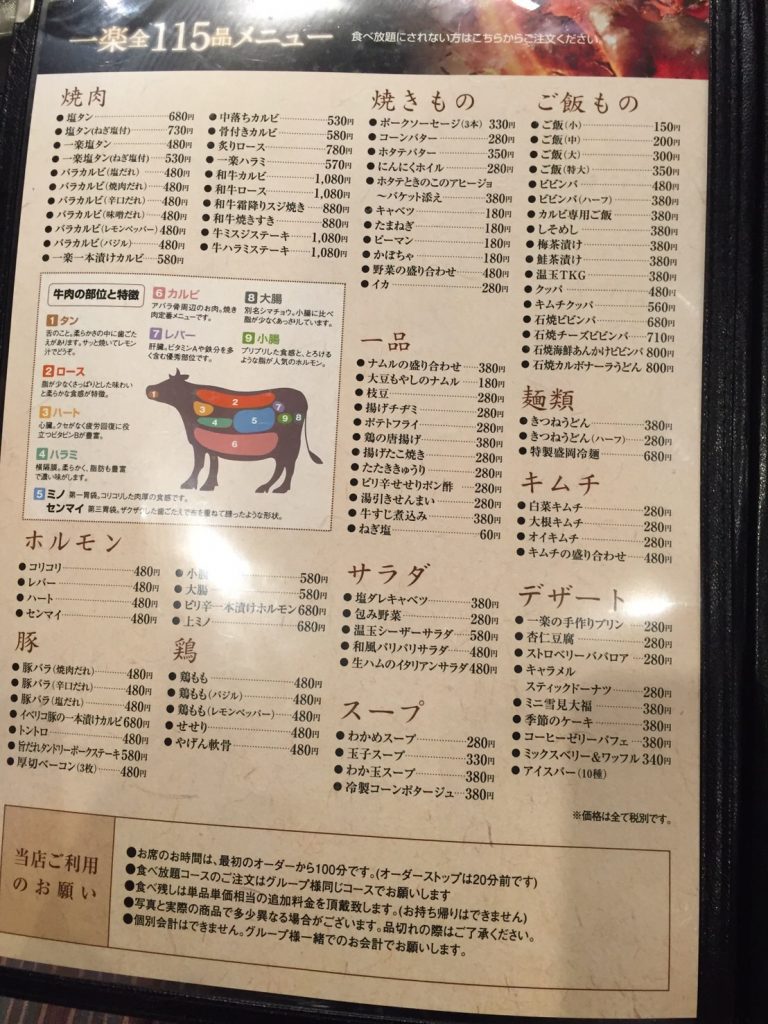 一楽全115品メニュー 食べ放題にされない方はこちらからご注文ください。
焼肉
●塩タン 680円
●塩タン(ねぎ塩付) 730円
●一楽塩タン 480円
●一楽塩タン(ねぎ塩付) 530円
●バラカルビ(塩だれ) 480円
●バラカルビ(焼肉だれ) 480円
●バラカルビ(辛口だれ) 480円
●バラカルビ(味噌だれ) 480円
●バラカルビ(レモンペッパー) 480円
●バラカルビ(バジル) 480円
●一楽一本漬けカルビ 580円
●中落ちカルビ 530円
●骨付きカルビ 580円
●炙りロース 780円
●一楽ハラミ 570円
●和牛カルビ 1,080円
●和牛ロース 1,080円
●和牛霜降りスジ焼き 880円
●和牛焼きすき 880円
●牛ミスジステーキ 1,080円
●牛ハラミステーキ 1,080円
牛肉の部位と特徴
1 タン
舌のこと。柔らかさの中に歯ごた
えがあります。サッと焼いてレモン
汁でどうぞ。
2 ロース
脂が少なくさっぱりとした味わい
と柔らかな食感が特徴。
3 ハート
心臓。クセがなく疲労回復に役
立つビタミンBが豊富。
4 ハラミ
横隔膜。柔らかく、脂肪も豊富
で濃い味がします。
5 ミノ 第一胃袋。コリコリした肉厚の食感です。
センマイ 第三胃袋。ザクザクした歯ごたえで布を重ねて縫ったような形状。
6 カルビ
アバラ骨周辺のお肉。焼き
肉定番メニューです。
7 レバー
肝臓。ビタミンAや鉄分を多
く含む優秀部位です。
8 大腸
別名シマチョウ。小腸に比べ
脂が少なくあっさりしています。
9 小腸
プリプリした食感と、とろける
ような脂が人気のホルモン。
1
2
3
4
5
6
7
8
9
ホルモン
●コリコリ 480円
●レバー 480円
●ハート 480円
●センマイ 480円
●小腸 580円
●大腸 580円
●ピリ辛一本漬けホルモン 680円
●上ミノ 680円
豚
●豚バラ(焼肉だれ) 480円
●豚バラ(辛口だれ) 480円
●豚バラ(塩だれ) 480円
●イベリコ豚の一本漬けカルビ 680円
●トントロ 480円
●旨だれタンドリーポークステーキ 580円
●厚切ベーコン(3枚) 480円
鶏
●鶏もも 480円
●鶏もも(バジル) 480円
●鶏もも(レモンペッパー) 480円
●せせり 480円
●やげん軟骨 480円
焼きもの
●ポークソーセージ(3本) 330円
●コーンバター 280円
●ホタテバター 350円
●にんにくホイル 280円
●ホタテときのこのアヒージョ
～バケット添え 380円
●キャベツ 180円
●たまねぎ 180円
●ピーマン 180円
●かぼちゃ 180円
●野菜の盛り合わせ 480円
●イカ 280円
一品
●ナムルの盛り合わせ 380円
●大豆もやしのナムル 180円
●枝豆 280円
●揚げチヂミ 280円
●ポテトフライ 280円
●鶏の唐揚げ 380円
●揚げたこ焼き 280円
●たたききゅうり 280円
●ピリ辛せせりポン酢 280円
●湯引きせんまい 280円
●牛すじ煮込み 380円
●ねぎ塩 60円
サラダ
●塩ダレキャベツ 380円
●包み野菜 280円
●温玉シーザーサラダ 580円
●和風パリパリサラダ 480円
●生ハムのイタリアンサラダ 480円
スープ
●わかめスープ 280円
●玉子スープ 330円
●わか玉スープ 380円
●冷製コーンポタージュ 380円
ご飯もの
●ご飯(小) 150円
●ご飯(中) 200円
●ご飯(大) 300円
●ご飯(特大) 350円
●ビビンバ 480円
●ビビンバ(ハーフ) 380円
●カルビ専用ご飯 380円
●しそめし 380円
●梅茶漬け 380円
●鮭茶漬け 380円
●温玉TKG 380円
●クッパ 480円
●キムチクッパ 560円
●石焼ビビンバ 680円
●石焼チーズビビンバ 710円
●石焼海鮮あんかけビビンバ 800円
●石焼カルボナーラうどん 800円
麺類
●きつねうどん 380円
●きつねうどん(ハーフ) 280円
●特製盛岡冷麺 680円
キムチ
●白菜キムチ 280円
●大根キムチ 280円
●オイキムチ 280円
●キムチの盛り合わせ 480円
デザート
●一楽の手作りプリン 280円
●杏仁豆腐 280円
●ストロベリーババロア 280円
●キャラメル
スティックドーナツ 280円
●ミニ雪見大福 380円
●季節のケーキ 380円
●コーヒーゼリーパフェ 380円
●ミックスベリー&ワッフル 340円
●アイスバー(10種)
※価格は全て税別です。
当店ご利用
のお願い
●お席のお時間は、最初のオーダーから100分です。(オーダーストップは20分前です)
●食べ放題コースのご注文はグループ様同じコースでお願いします
●食べ残しは単品単価相当の追加料金を頂戴致します。(お持ち帰りはできません)
●写真と実際の商品で多少異なる場合がございます。品切れの際はご了承ください。
●個別会計はできません。グループ様一緒でのお会計でお願いします。